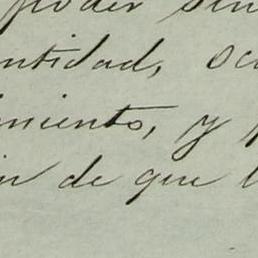 poder sin
ntidad, sa
imiento, y
in de que l